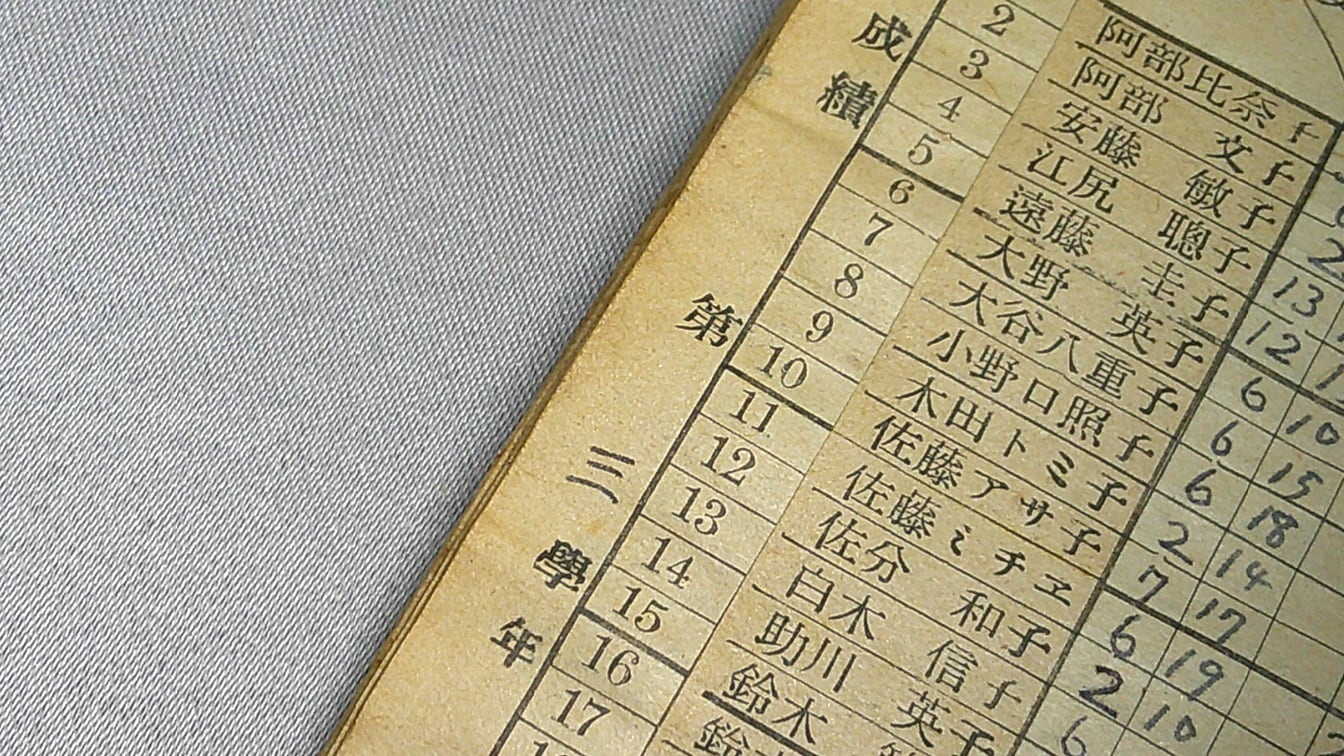 成績 第三學年
阿部比奈子
2 阿部 文子
3 安藤 敏子
4 江尻 聰子 2
5 遠藤 圭子 13
6 大野 英子 12
7 大谷八重子 6 10
8 小野口照子 6 15
9 木田トミ子 6 18
10 佐藤アサ子 2 14
11 佐藤ミチヱ 7 17
12 佐分 和子 6 19
13 白木 信子 2 10
14 助川 英子 6
15 鈴木
16
17